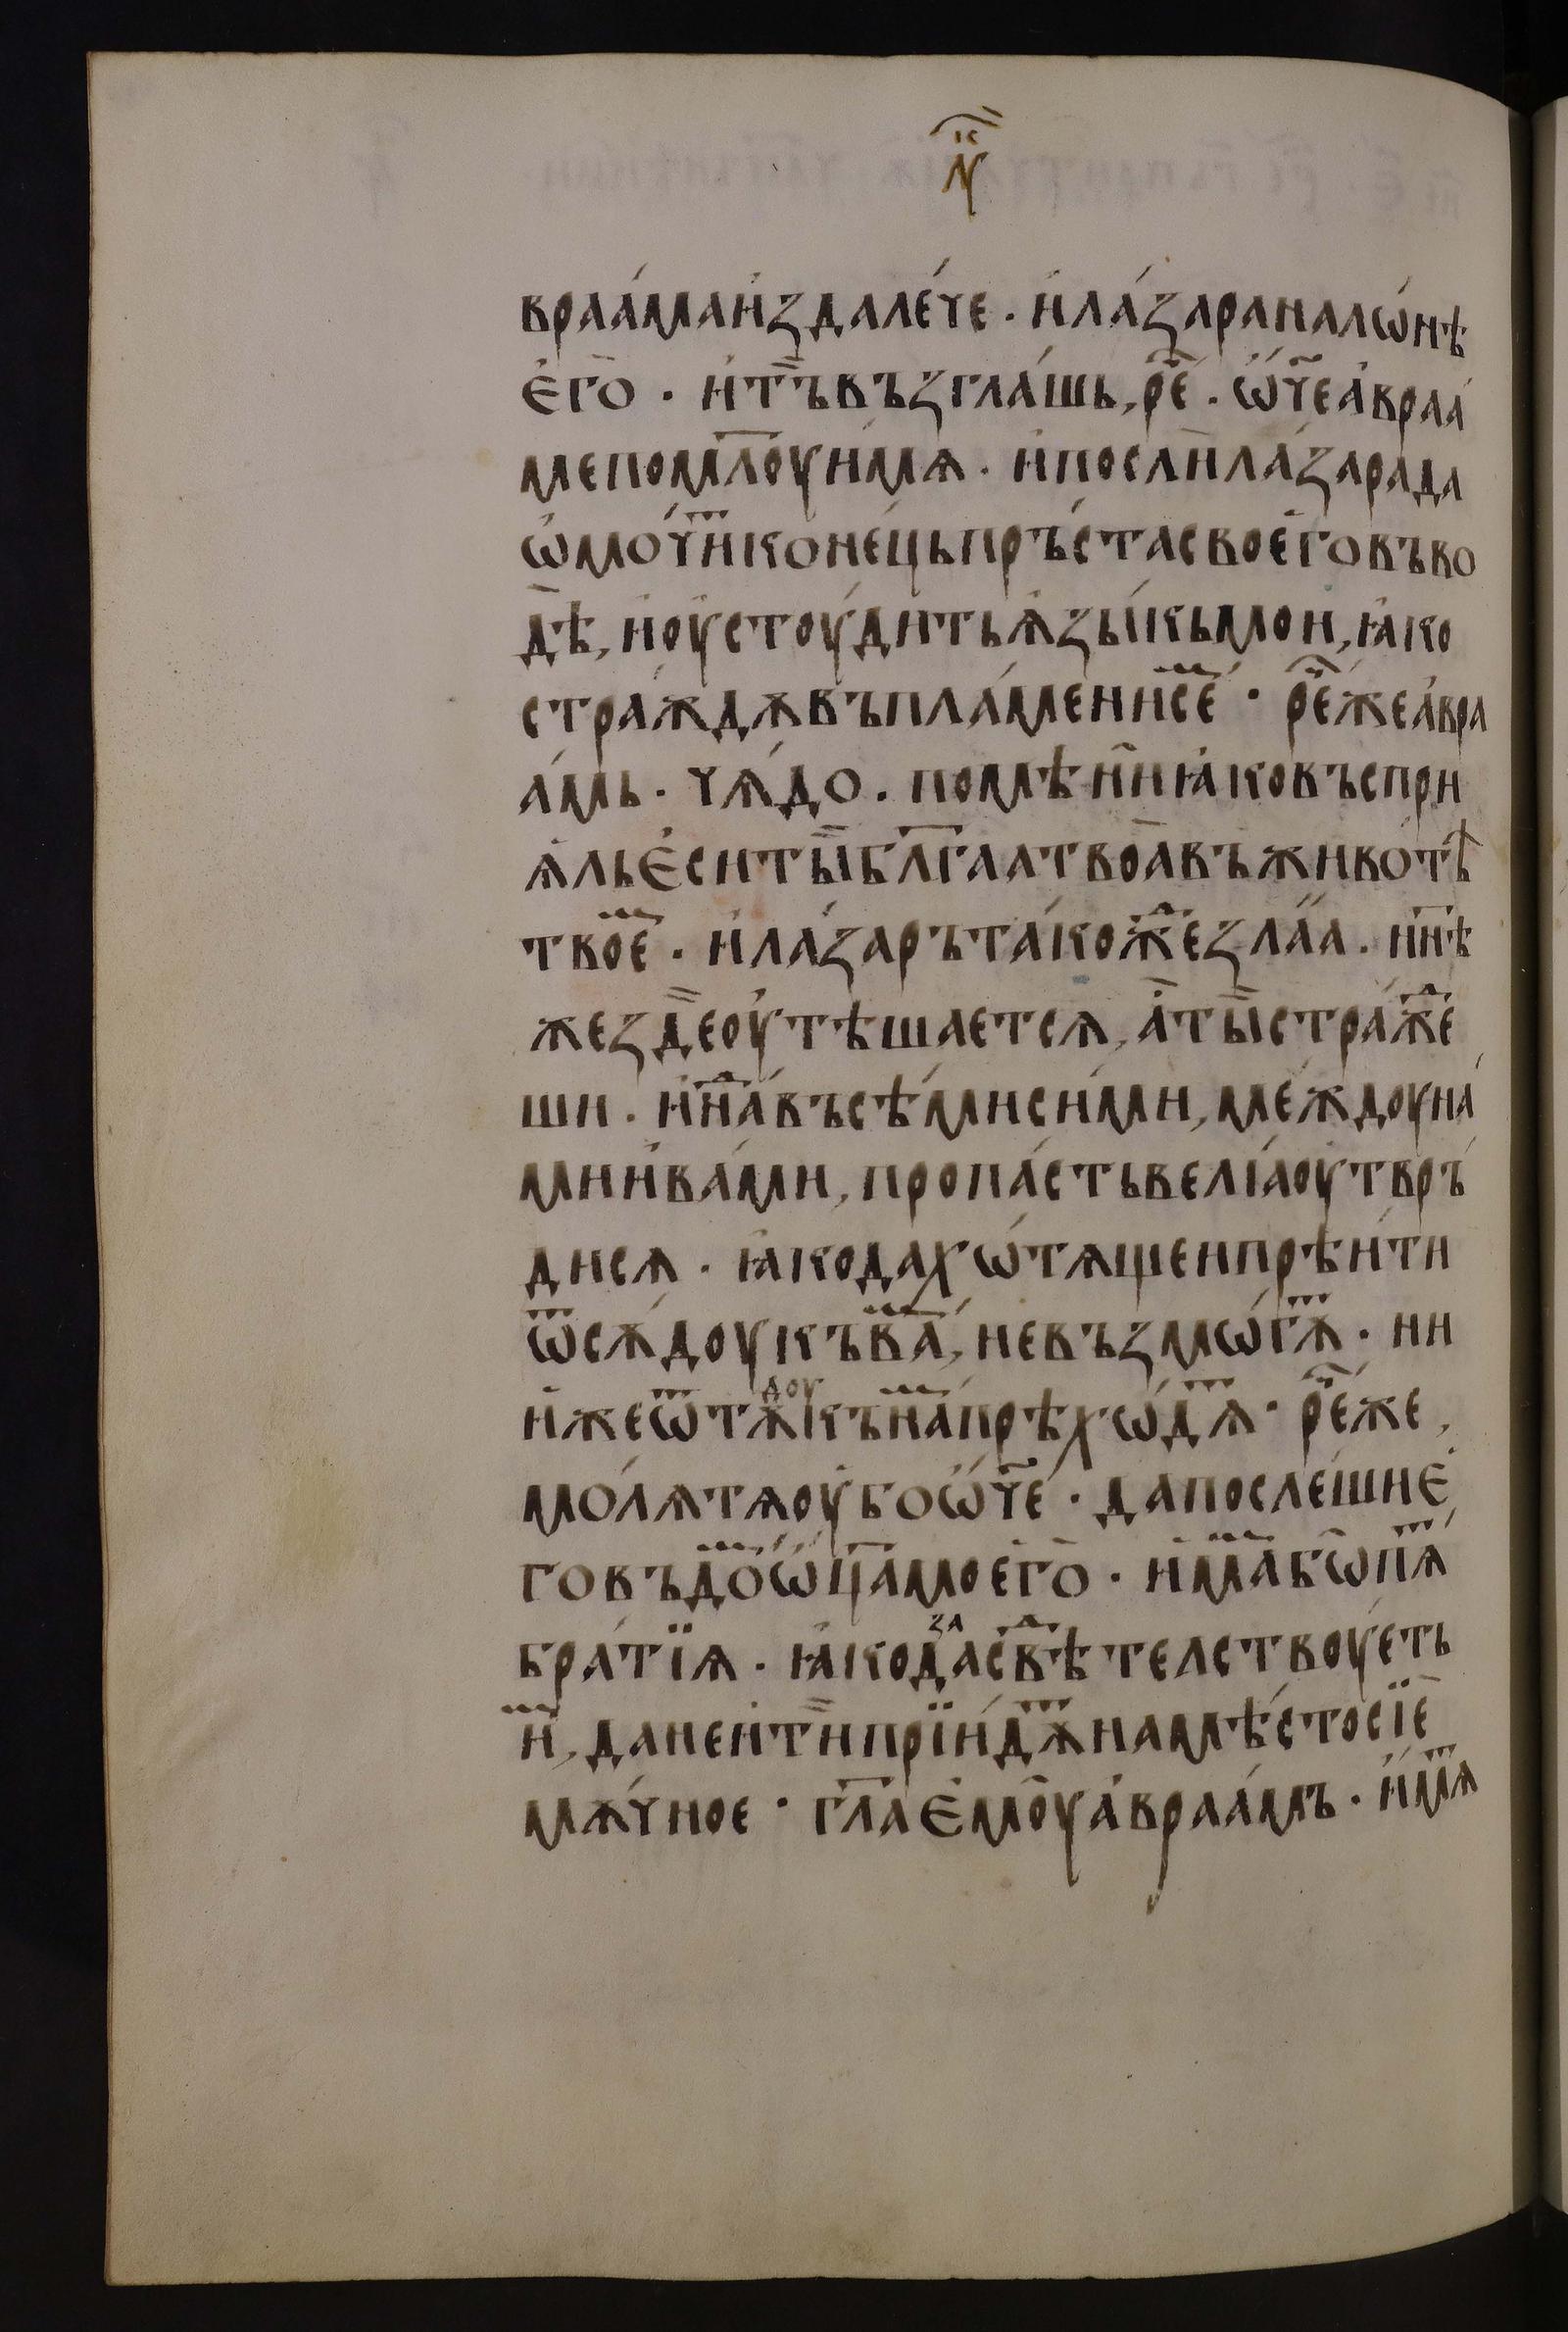 л҃ꙋ
враа́ма и҆здале́че · и҆ ла́зара на лѡ́нѣ
є҆го̀ · и҆ тъ̏ възгла́шь, ре҇ · ѡ҆́ч҃е а҆враа́
ме пом҃лоуи мѧ · и҆ посли̏ ла́зара да
ѡ҆мо́чⷮи коне́ць пръ́ста свое҆го въ во
д̀ѣ, и҆ оу҆стоу́дить ѧ҆зы́кь мои, ꙗ҆ко
стра́ждѫ въ пла́мениⷨ се́ · ре҇́ же а҆вра
а́мь · чѧ́до · помѣни̑ ꙗ҆ко въспри
ѧ҆́ль є҆си ты̏ бл҃гаа твоа̀ въ живо́тѣ
твоеⷨ · и҆ ла́заръ та́кожⷣе зла́а · нн҃ѣ
же зде̏ оу҆тѣшается, а҆̀ ты̏ стра́жⷣе
ши · и҆ наⷣ въсѣ́ми си́ми, ме́ждоу на́
ми и҆ ва́ми, пропа́сть веліа́ оу҆твръ́
дися · ꙗ҆ко да хѡ́тѧщеи прѣи́ти
ѿ сѫ́доу къ ваⷨ, не възмѡ́гѫⷮ · ни
и҆же ѿ тѫдоу къ наⷨ прѣхѡ́дѧⷮ · ре҇ же,
молѧ́ тѧ оу҆бо ѡ҆́ч҃е · да после́ши є҆
го въ доⷨ ѡ҆ц҃а мое҆го̀ · и҆маⷨ бѡ пѧⷮ
бра́тїѧ · ꙗ҆ко да засвⷣѣтелствоуеть
иⷨ, да не и҆ ти̏ прїи́дѫⷮ на мѣ́сто сїѐ
мѫ́чное · гл҃а є҆моу̑ а҆враа́мъ · и҆́мѫⷮ